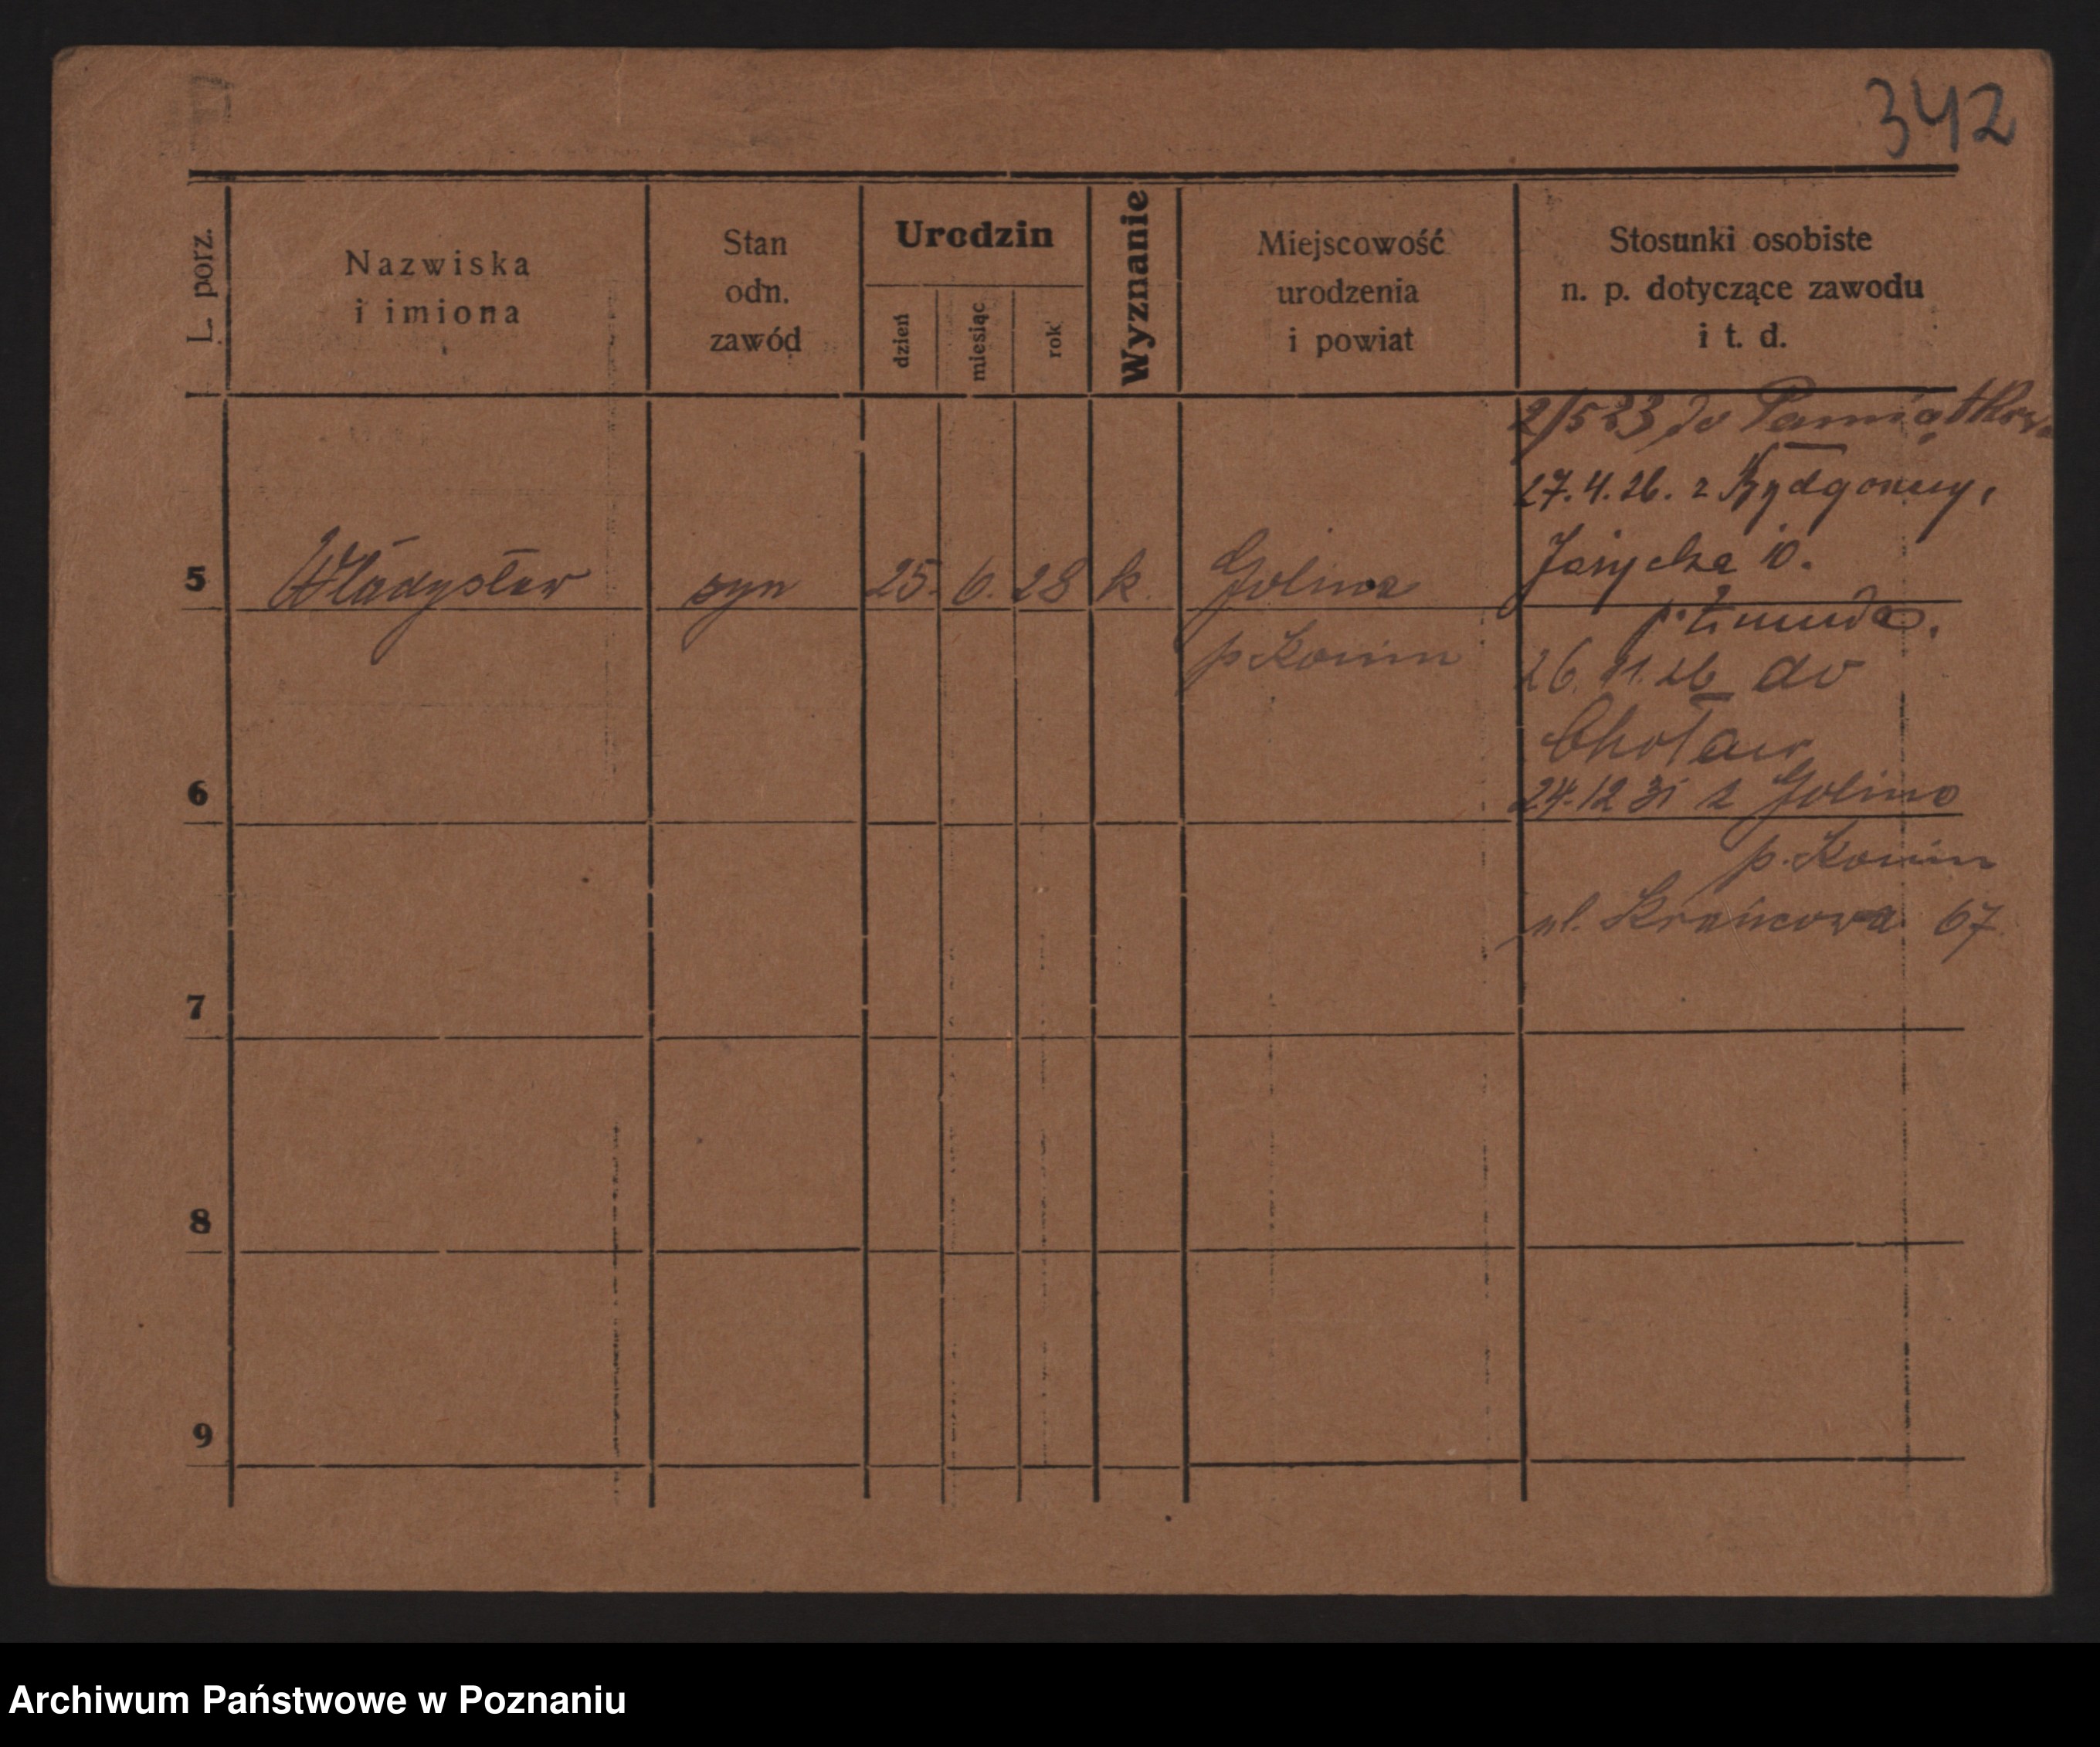 342
L. porz.
Nazwiska
i imiona
Stan
odn.
zawód
Urodzin
dzień
miesiąc
rok
Wyznanie
Miejscowość
urodzenia
i powiat
Stosunki osobiste
n. p. dotyczące zawodu
i t. d.
2/5 23 do
27.4.26. z Bydgoszczy,
10.
26. 11. 26 do
24.12 31 z Golina
p. Konin
ul. Krańcowa 67
5 Władysław syn 25. 6. 28 k. Golina
p Konin
6
7
8
9
Archiwum Państwowe w Poznaniu